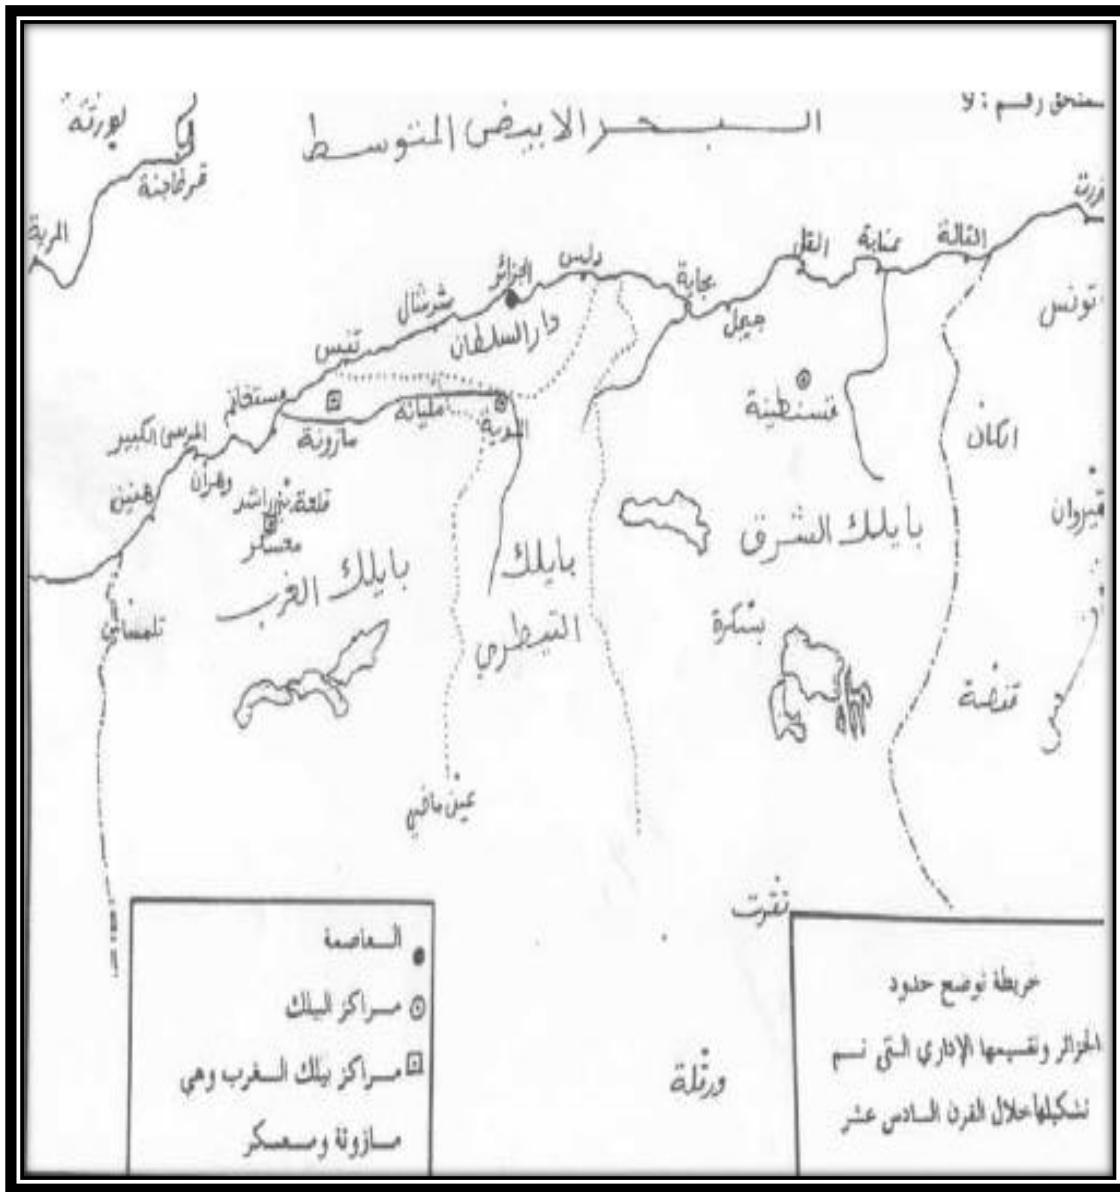 ملحق رقم : 9
البحر الابيض المتوسط
لورتة
قرطاجنة
المرية
القالة
عنابة
القل
جيجل
بجاية
دلس
الجزائر
شرشال
تنس
مستغانم
المرسى الكبير
وهران
هنين
دار السلطان
تونس
قسنطينة
المدية
مليانة
مازونة
قلعة بني راشد
معسكر
الكاف
قيروان
بايلك الشرق
بايلك
التيطري
بايلك الغرب
تلمسان
بسكرة
قفصة
عين ماضي
تقرت
ورقلة
العاصمة
مراكز البيلك
مراكز بيلك الغرب وهي
مازونة ومعسكر
خريطة توضح حدود
الجزائر وتقسيمها الإداري التي تم
تشكيلها خلال القرن السادس عشر